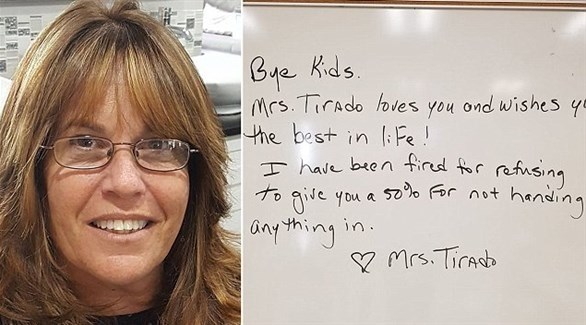 Bye Kids.
Mrs. Tirado loves you and wishes y
the best in life!
I have been fired for refusing
to give you a 50% for not handing
anything in.
♡ Mrs. Tirado